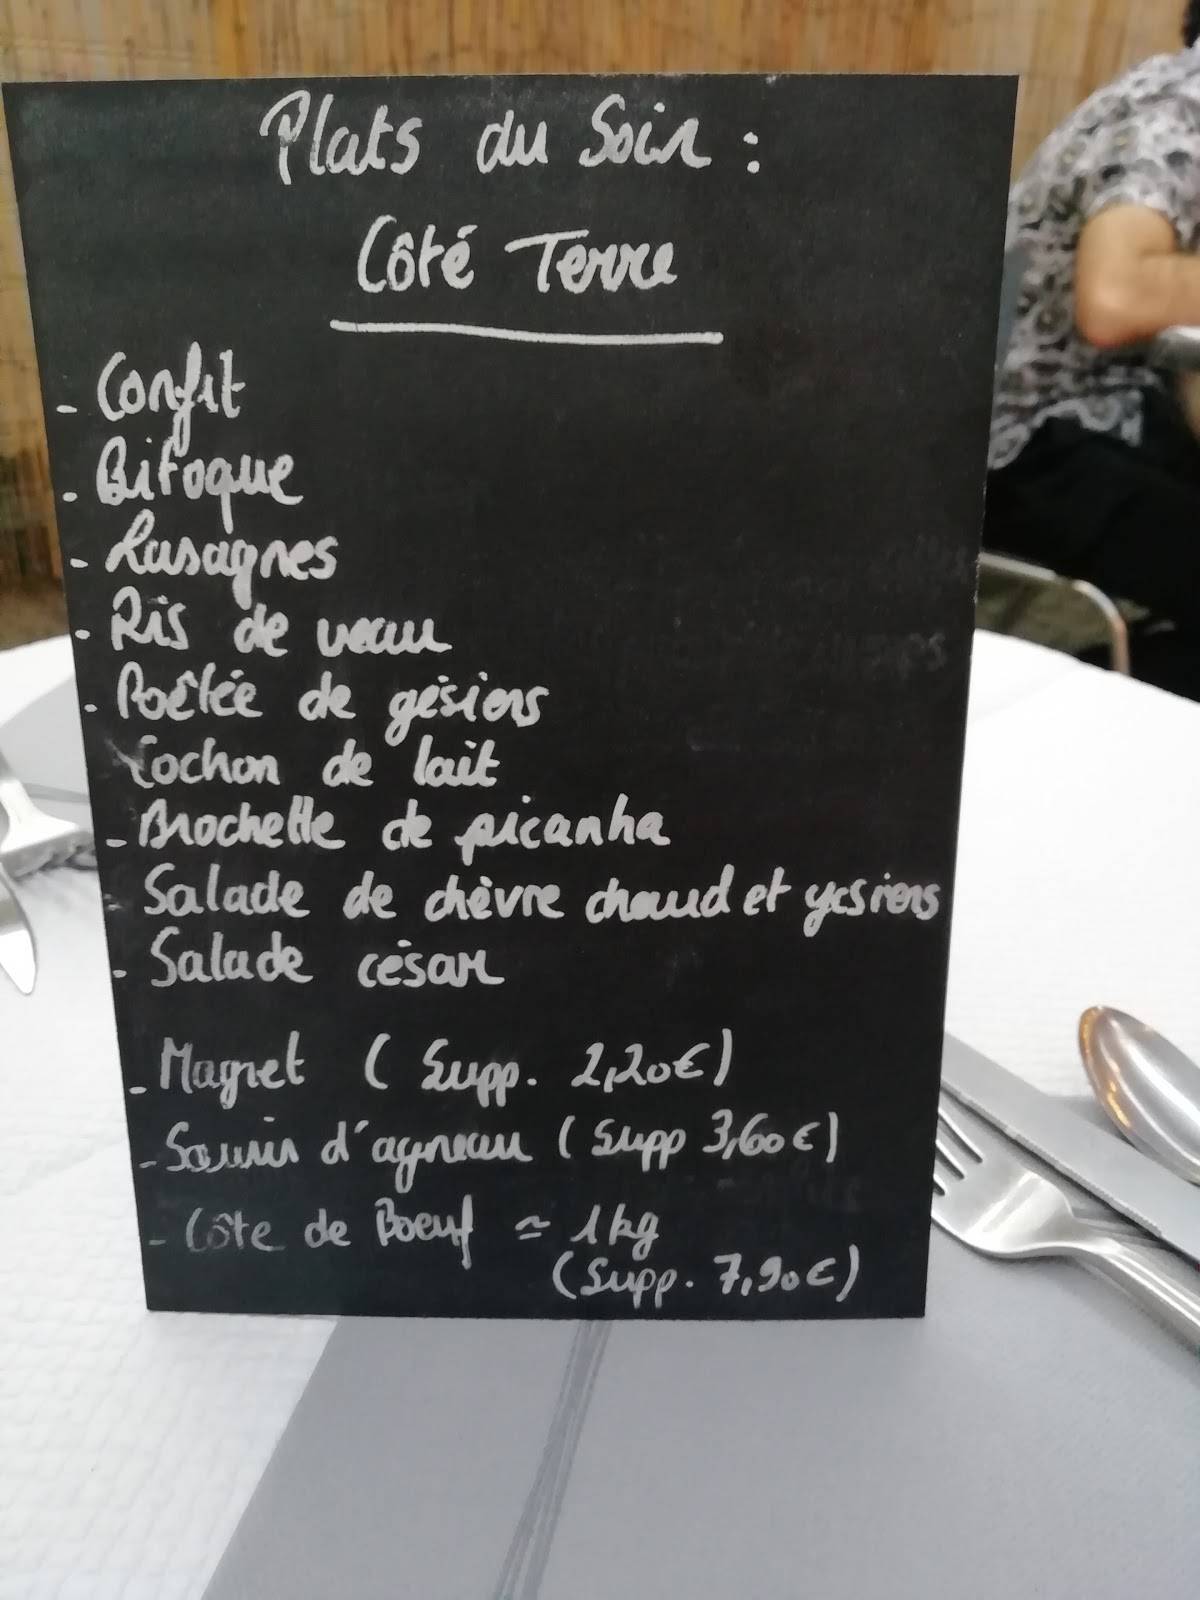 Plats du Soir :
Côté Terre
- Confit
- Bitoque
- Lasagnes
- Ris de veau
- Poêlée de gésiers
Cochon de lait
- Brochette de picanha
- Salade de chèvre chaud et gesiers
- Salade césar
- Magret ( Supp. 2,20€)
- Souris d'agneau ( Supp 3,60€)
- Côte de Boeuf ≃ 1kg
(Supp. 7,90€)